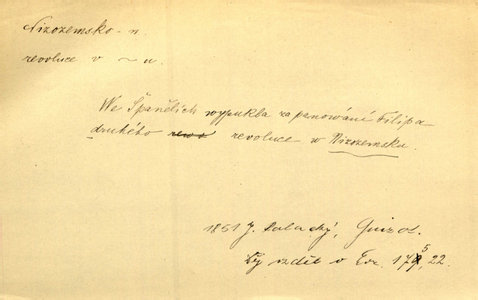 Nizozemsko - n.
revoluce v ~ u.
We Španělích wypukla za panowání Filipa
druhého revoluce w Nizozemsku.
1851 J. Malacký, Guizot.
Vý vzděl. v Evr. 175, 22.